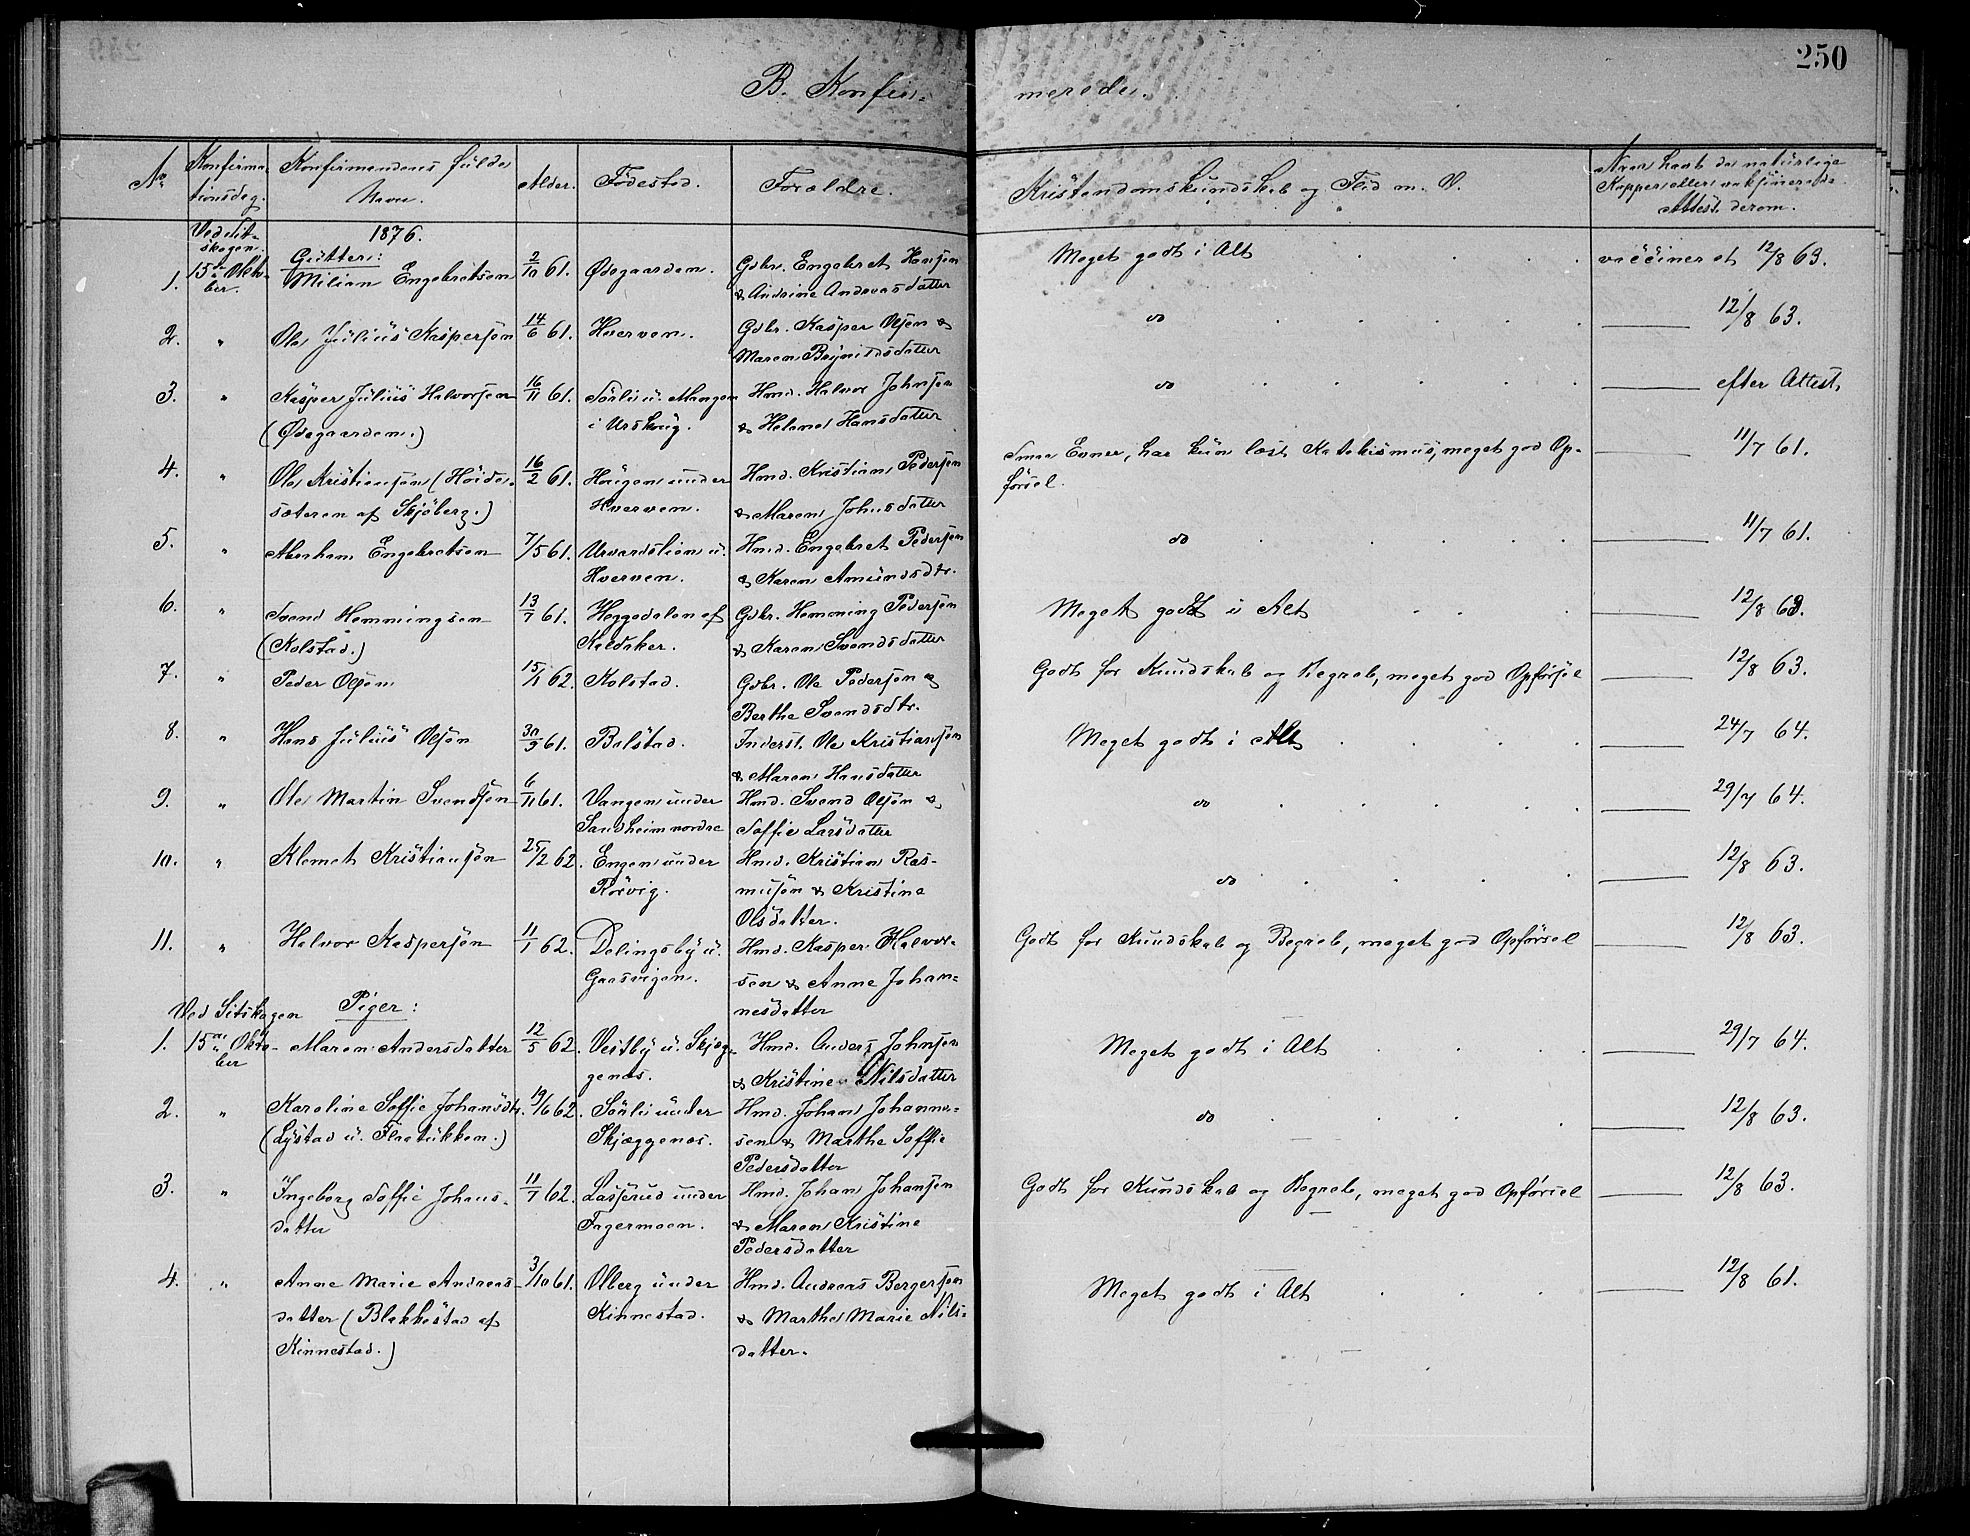 250
B. Konfir- merede.
No Konfirma- tionsdag. Konfirmandens fulde Navn. Alder. Födested. Forældre. Kristendomskundskab og Flid m. V. Naar havt de naturlige Kopper eller vaksinerede Attest derom.
Ved Sit- skogen. 1876.
Gutter:
1. 15de Okto- ber. Milian Engebretsen 2/10 61. Ødegaarden. Gdbr. Engebret Hansen Meget godt i Alt vaccineret 12/8 63.
& Andrine Andreasdatter
2. " Ole Julius Kaspersen 14/6 61. Hverven. Gdbr. Kasper Olsen & do 12/8 63.
Maren Brynildsdatter
3. " Kasper Julius Halvorsen 16/11 61. Sörli u. Mangen Hmd. Halvor Johnsen do efter Attest.
(Ødegaarden.) i Urskoug. & Helene Hansdatter
4. " Ole Kristiansen (Höide- 16/2 61. Haugen under Hmd. Kristian Pedersen Smaa Evner, har kun læst Katekismus, meget god Op- 11/7 61.
sæteren af Skjöberg.) Hverven. & Maren Johnsdatter försel.
5. " Abraham Engebretsen 7/5 61. Urvardslien u. Hmd. Engebret Pedersen do 11/7 61.
Hverven. & Karen Amundsdtr.
6. " Svend Hemmingsen 13/7 61. Heggedalen af Gdbr. Hemming Pedersen Meget godt i Alt 12/8 63.
(Kolstad.) Kaldaker. & Karen Svendsdatter
7. " Peder Olsen 15/1 62. Kolstad. Gdbr. Ole Pedersen & Godt for Kundskab og Begreb, meget god Opförsel 12/8 63.
Berthe Svendsdtr.
8. " Hans Julius Olsen 30/9 61. Bolstad. Inderst. Ole Kristiansen Meget godt i Alt 24/7 64.
& Maren Hansdatter
9. " Ole Martin Svendsen 6/11 61. Vangen under Hmd. Svend Olsen & do 29/7 64.
Sandheim nordre Soffie Larsdatter
10. " Klemet Kristiansen 25/2 62. Engen under Hmd. Kristian Ras- do 12/8 63.
Rörvig. musen & Kristine
Olsdatter.
11. " Halvor Kaspersen 11/1 62. Delingsby u. Hmd. Kasper Halvor- Godt for Kundskab og Begreb, meget god Opförsel 12/8 63.
Gaasvigen. sen & Anne Johan-
nesdatter
Ved Sitskogen Piger:
1. 15de Okto- ber Maren Andersdatter 12/5 62. Vestby u. Skjæg- Hmd. Anders Johnsen Meget godt i Alt 29/7 64.
genæs. & Kristine Nilsdatter
2. " Karoline Soffie Johansdtr. 19/6 62. Sörli under Hmd. Johan Johanne- do 12/8 63.
(Lystad u. Flaatukken.) Skjæggenæs. sen & Marthe Soffie
Pedersdatter
3. " Ingeborg Soffie Johans- 11/7 62. Lasserud under Hmd. Johan Johansen Godt for Kundskab og Begreb, meget god Opförsel 12/8 63.
datter Fagermoen. & Maren Kristine
Pedersdatter
4. " Anne Marie Andreas- 3/10 61. Olberg under Hmd. Andreas Bergersen Meget godt i Alt 12/8 61.
datter (Blakkestad af Kinnestad. & Marthe Marie Nils-
Kinnestad.) datter.